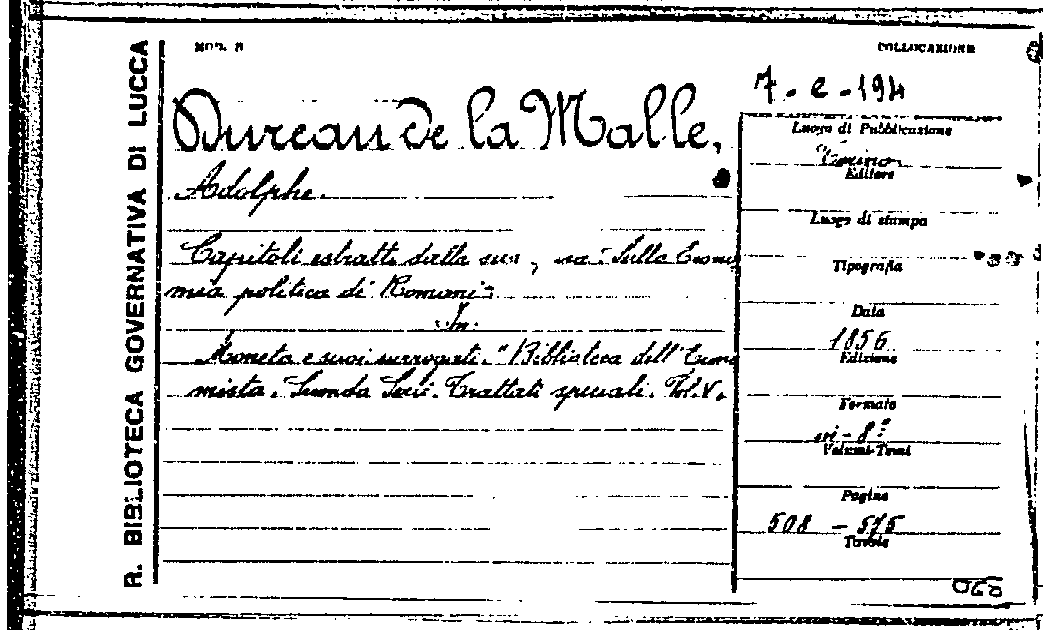 R. BIBLIOTECA GOVERNATIVA DI LUCCA
MOD. 8
COLLOCAZIONE
7-e-194
Dureau de la Malle,
Adolphe.
Capitoli estratti dalla sua, : Sulla Econo
mia politica di Romani-
In:
Moneta e suoi surrogati. "Biblioteca dell'Econo
mista. Seconda Serie. Trattati speciali. Vol. V.
Luogo di Pubblicazione
Torino
Editore
Luogo di stampa
Tipografia
Data
1856
Edizione
Formato
in-8°
Volumi-Tomi
Pagine
508 - 575
Tavole